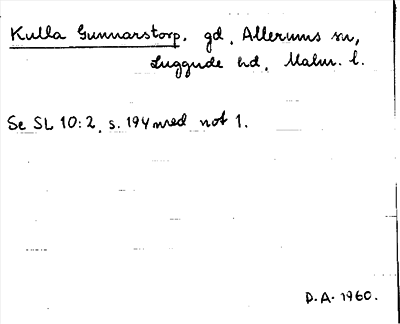 Kulla Gunnarstorp. gd, Allerums sn,
Luggude hd, Malm. l.
Se SL 10:2, s. 194 med not 1.
D.A. 1960.